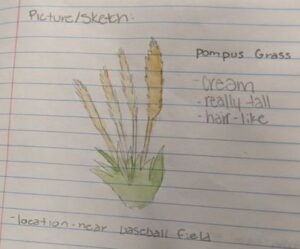 Picture/Sketch:
Pompus Grass
- cream
- really tall
- hair-like
- location - near baseball field